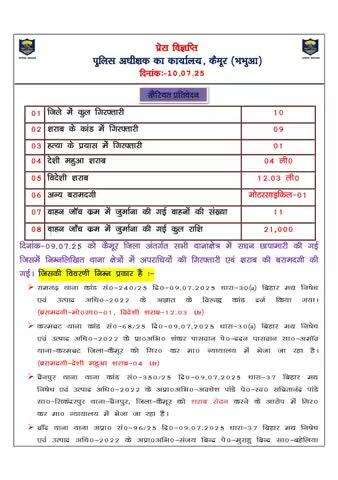 प्रेस विज्ञप्ति
पुलिस अधीक्षक का कार्यालय, कैमूर (भभुआ)
दिनांक:-10.07.25
संक्षिप्त प्रतिवेदन
01 जिले में कुल गिरफ्तारी 10
02 शराब के कांड में गिरफ्तारी 09
03 हत्या के प्रयास में गिरफ्तारी 01
04 देशी महुआ शराब 04 ली0
05 विदेशी शराब 12.03 ली0
06 अन्य बरामदगी मोटरसाइकिल-01
07 वाहन जाँच क्रम में जुर्माना की गई वाहनों की संख्या 11
08 वाहन जाँच क्रम में जुर्माना की गई कुल राशि 21,000
दिनांक-09.07.25 को कैमूर जिला अंतर्गत सभी थानाक्षेत्र में सघन छापामारी की गई
जिसमें निम्नलिखित थाना क्षेत्रों में अपराधियों की गिरफ्तारी एवं शराब की बरामदगी की
गई। जिसकी विवरणी निम्न प्रकार है :-
रामगढ़ थाना कांड सं0-240/25 दि0-09.07.2025 धारा-30(a) बिहार मद्य निषेध
एवं उत्पाद अधि0-2022 के अज्ञात के विरुद्ध कांड दर्ज किया गया।
(बरामदगी-मो0सा0-01, विदेशी शराब-12.03 ली0)
करमचट थाना कांड सं0-68/25 दि0-09.07.2025 धारा-30(a) बिहार मद्य निषेध
एवं उत्पाद अधि0-2022 के प्रा0अभि0 शंकर पासवान पे0-बदन पासवान सा0-
थाना-करमचट जिला-कैमूर को गिर0 कर मा0 न्यायालय में भेजा जा रहा है।
(बरामदगी-देशी महुआ शराब-04 ली0)
चैनपुर थाना कांड सं0-350/25 दि0-09.07.2025 धारा-37 बिहार मद्य
निषेध एवं उत्पाद अधि0-2022 के अप्रा0अभि0-अवधेश पांडे पे0-स्व0 सच्चितानंद पांडे
सा0-सिकंदरपुर थाना-चैनपुर, जिला-कैमूर को शराब सेवन करने के आरोप में गिर0
कर मा0 न्यायालय में भेजा जा रहा है।
चाँद थाना अप्रा0 सं0-96/25 दि0-09.07.2025 धारा-37 बिहार मद्य निषेध
एवं उत्पाद अधि0-2022 के अप्रा0अभि0-संजय बिन्द पे0- बिन्द सा0-बहेलिया